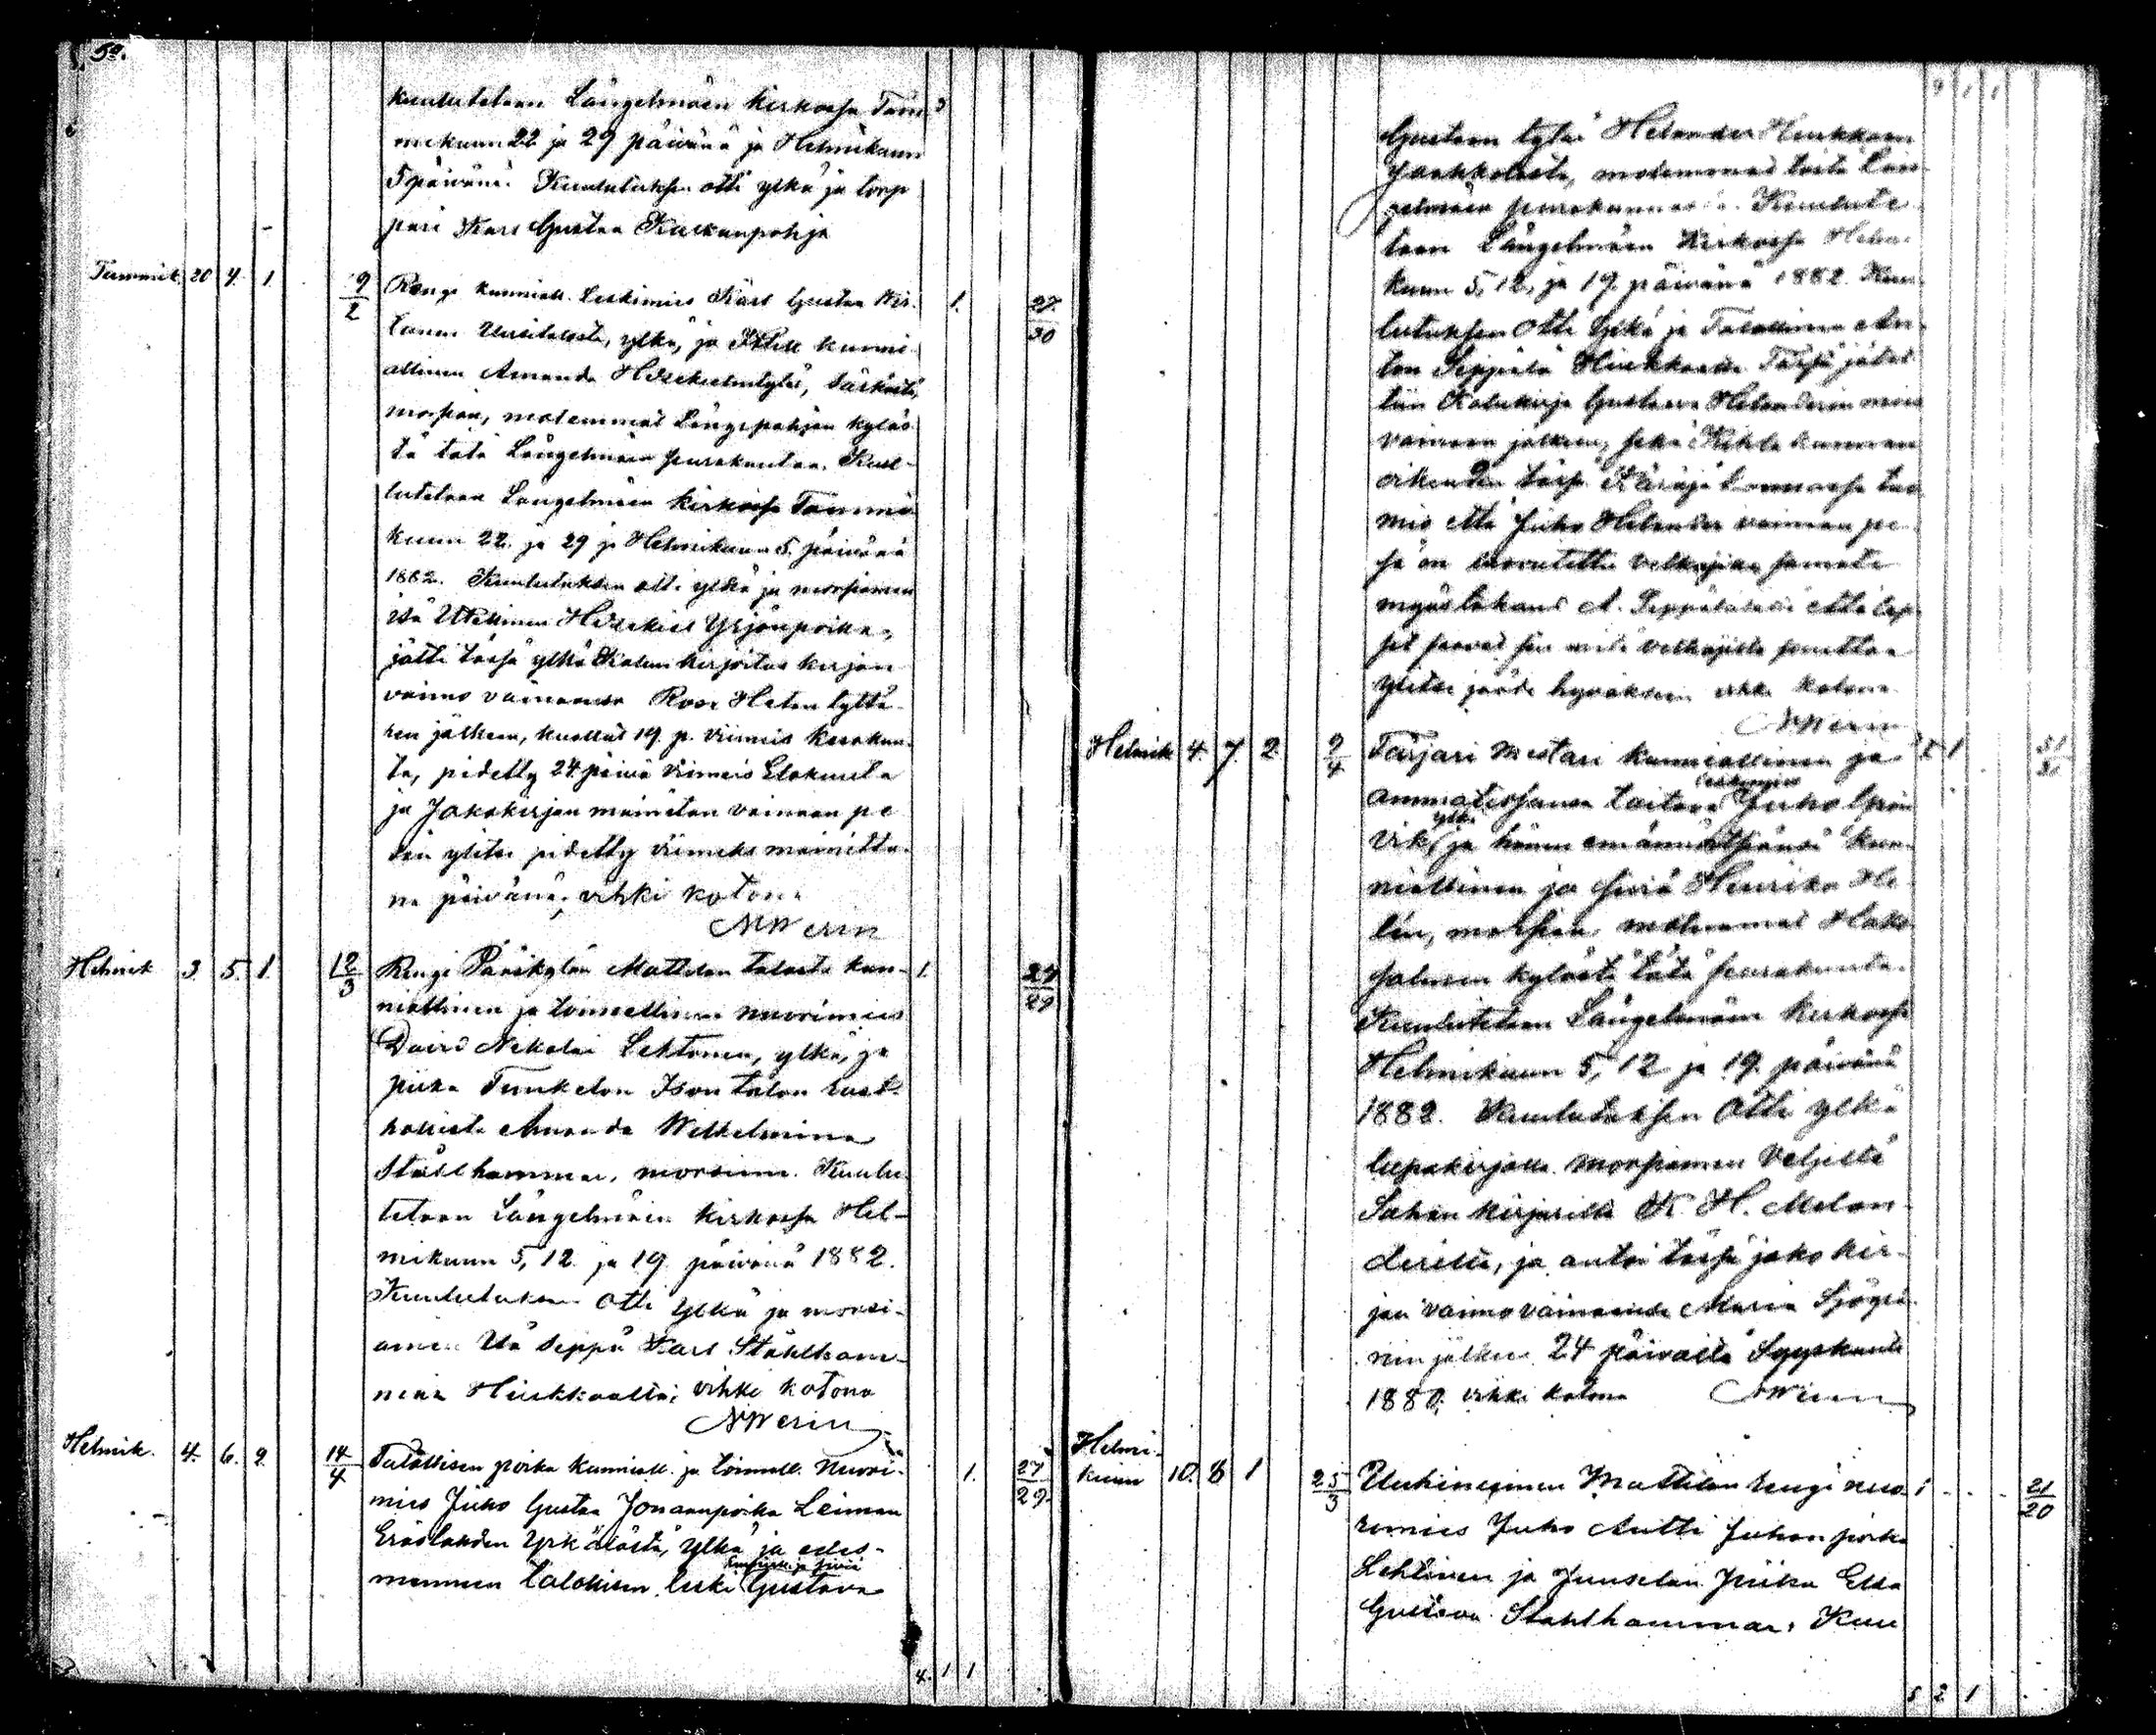 50.
kuulutetaan Längelmäen kirkossa Tam 3
mekuun 22 ja 29 päivänä ja Helmikuun
5 päivänä. Kuulutuksen otti ylkä ja torp
pari Karl Gustaa Kaskanpohja
Tammik. 20 4. 1 9/2 Rengi kunniall. Leskimies Karl Gustaa Wir- 1. 27/30
tanen Uusitalosta, ylkä, ja Itell. kunni
allinen Amanda Hesekielintytär, Särkästä,
morsian, molemmat Längepohjan kyläs
tä tätä Längelmäen seurakuntaa. Kuu-
lutetaan Längelmäen kirkossa Tammi
kuun 22. ja 29 ja Helmikuun 5. päivänä
1882. Kuulutuksen otti ylkä ja morsiamen
isä Itellinen Hesekiel Yrjönpoika,
jätti tässä ylkä Kalun kirjoitus kirjan
vaimo vainaansa Rosa Helen tyttä-
ren jälkeen, kuollut 19. p. viimeis kesäkuu-
ta, pidetty 24 päivä viimeis Elokuuta
ja Jakokirjan mainitun vaimoan pe
sän ylitse pidetty viimeksi mainittu-
na päivänä; vihki kotona
NWerin
Helmik 3. 5. 1. 12/3 Rengi Pänikylän Mattilan talosta kun- 1. 24/29
niallinen ja toimellinen nuorimies
David Nikolai Lehtonen, ylkä, ja
piika Tunkelon Ison talon rust-
hollista Amanda Wilhelmina
Stålhammar, morsian. Kuulu-
tetaan Längelmäen kirkossa Hel-
mikuun 5, 12. ja 19. päivänä 1882.
Kuulutuksen otti ylkä ja morsi-
amen Isä Seppä Karl Ståhlham-
mar Hiukkaalta; vihki kotona
NWerin
Helmik. 4. 6. 2. 14/4 Talollisen poika kunniall. ja toimell. Nuori- 1. 27/29
mies Juho Gustaa Jonaanpoika Leiman
Eräslahden Yrkälästä, ylkä ja edes-
kunniall. ja siviä
mennen talollisen leski Gustava
4. 1 1
9 1 1
Gustaan tytär Helander Hiukkaan
Jaakkolasta, molemmat tästä Län
gelmäen seurakunnasta. Kuulute
taan Längelmäen Kirkossa Helmi
kuun 5, 12, ja 19. päivänä 1882. Kuu-
lutuksen otti ylkä ja Talollinen An-
ton Seppälä Hiukkaalta. Tässä jätet
tiin Kalukirja Gustaava Helanderin mies
vainaan jälkeen, sekä Kihlakunnan
oikeuden tässä Käräjäkunnassa tuo
mio että Juho Helander vainaan pe
sä on luovutettu velkojien samate
myös takaus A. Seppälältä että lap
set saavat sen mitä velkojilta saattaa
ylitse jäädä hyväksensä vihki kotona
NWerin
Helmik 4. 7. 2. 9/4 Värjäri Mestari kunniallinen ja 1 51/31
leskimies
ammatissansa taitava Juho Grön
ylkä
vik, ja hänen emännöitsiänsä kun-
niallinen ja siviä Henrika He
lin, morsian molemmat Hako
salmen kylästä tätä seurakunta.
Kuulutetaan Längelmäen kirkossa
Helmikuun 5, 12 ja 19. päivänä
1882. Kuulutuksen otti ylkä
lupakirjalla morsiamen Veljeltä
Sahan kirjurilta K. H. Melan-
derilta, ja antoi tässä jakokir-
jan vaimovainaansa Maria Sjögre-
nin jälkeen 24 päivältä Syyskuuta
1880; vihki kotona NWerin
Helmi-
kuun 10. 8 1 25/3 Uuhiniemen Mattilan rengi nuo- 1 21/20
rimies Juho Antti Juhonpoika
Lehtinen ja Juuselan Piika Elsa
Gustava Stahlhammar. Kuu
8 2 1